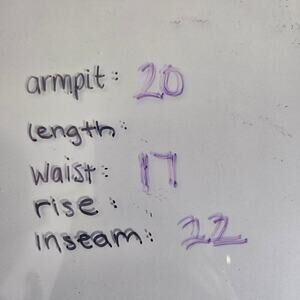 armpit: 20
length:
waist: 17
rise:
inseam: 22